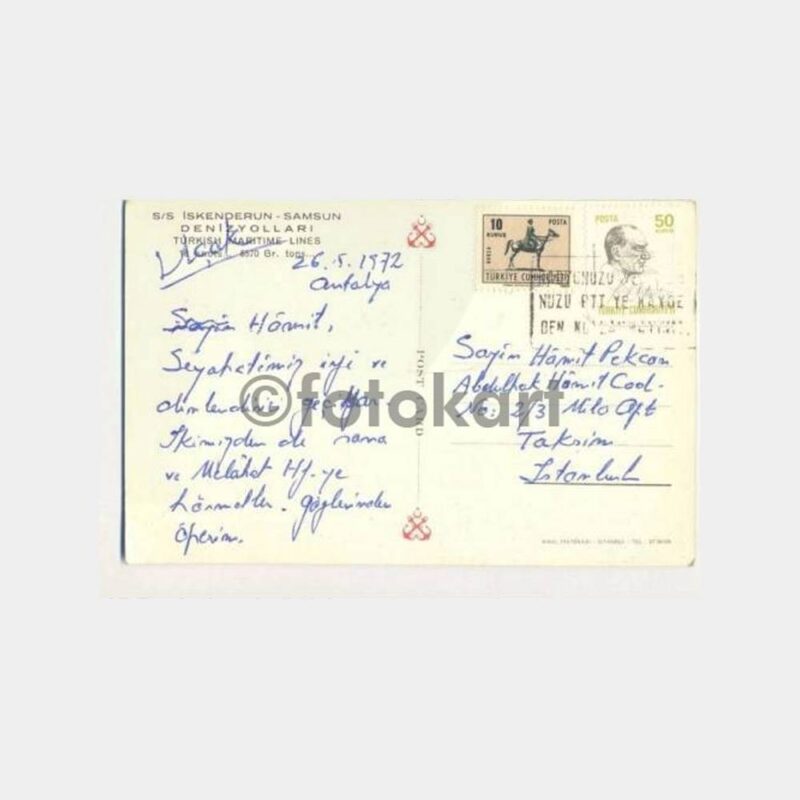 S/S İSKENDERUN - SAMSUN
DENİZYOLLARI
TURKISH MARITIME LINES
6570 Gr. tons
26.5.1972
Antalya
Sayın Hâmit,
Seyahatimiz iyi ve
dinlendirici geçiyor.
İkimizden de sana
ve Melâhat Hf.ye
hürmetler. Gözlerinden
öperim.
POST CARD
10
KURUŞ
POSTA
TÜRKİYE CUMHURİYETİ
POSTA
50
KURUŞ
TÜRKİYE CUMHURİYETİ
NUZU PTT YE
DEN
Sayın Hâmit Pekcan
Abdülhak Hâmit Cad.
No: 2/3 Milo Apt
Taksim
İstanbul
©fotokart